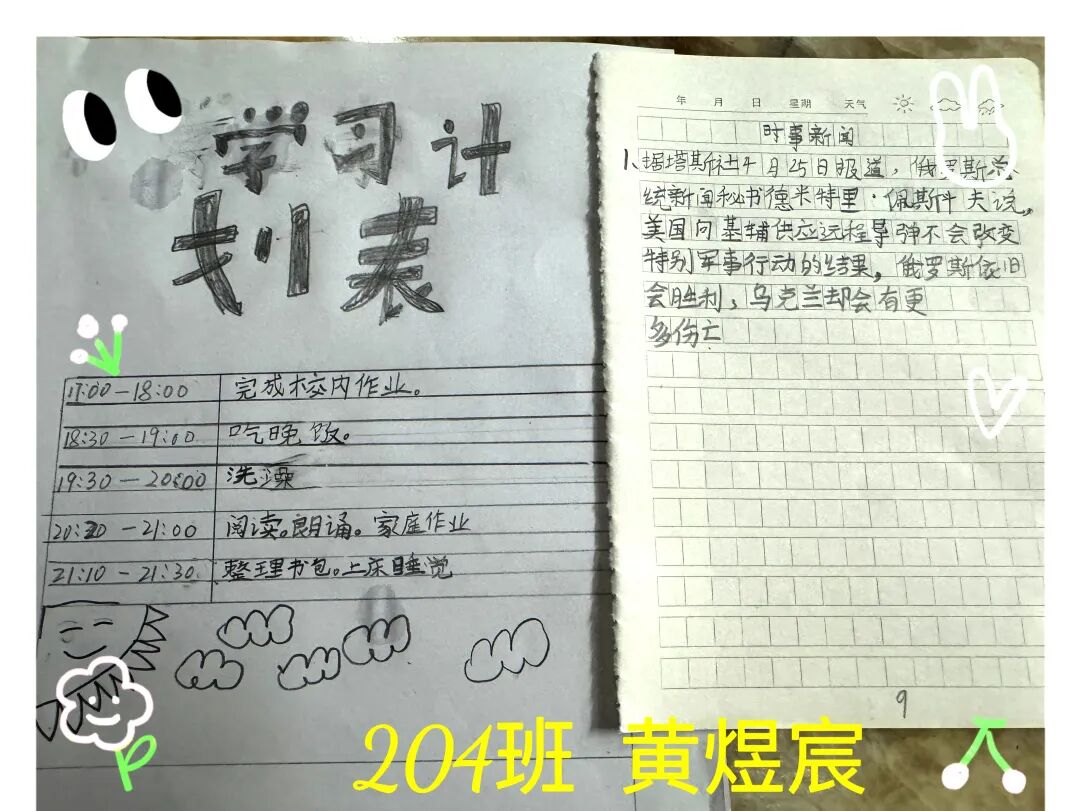 学习计
划表
17:00－18:00 完成校内作业。
18:30－19:00 吃晚饭。
19:30－20:00 洗澡
20:20－21:00 阅读。朗诵。家庭作业
21:10－21:30 整理书包。上床睡觉
年 月 日 星期 天气
时事新闻
1、据塔斯社4月25日报道，俄罗斯总
统新闻秘书德米特里·佩斯科夫说，
美国向基辅供应远程导弹不会改变
特别军事行动的结果，俄罗斯依旧
会胜利，乌克兰却会有更
多伤亡
9
204班 黄煜宸